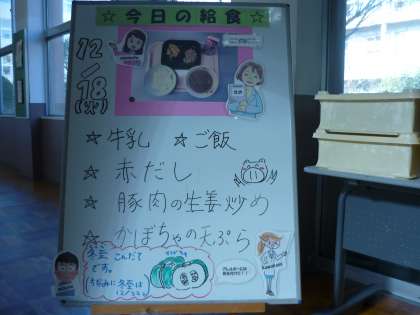 ☆今日の給食☆
12/18(火)
☆牛乳 ☆ご飯
☆赤だし
☆豚肉の生姜炒め
☆かぼちゃの天ぷら
冬至こんだて
です。
ちなみに冬至は